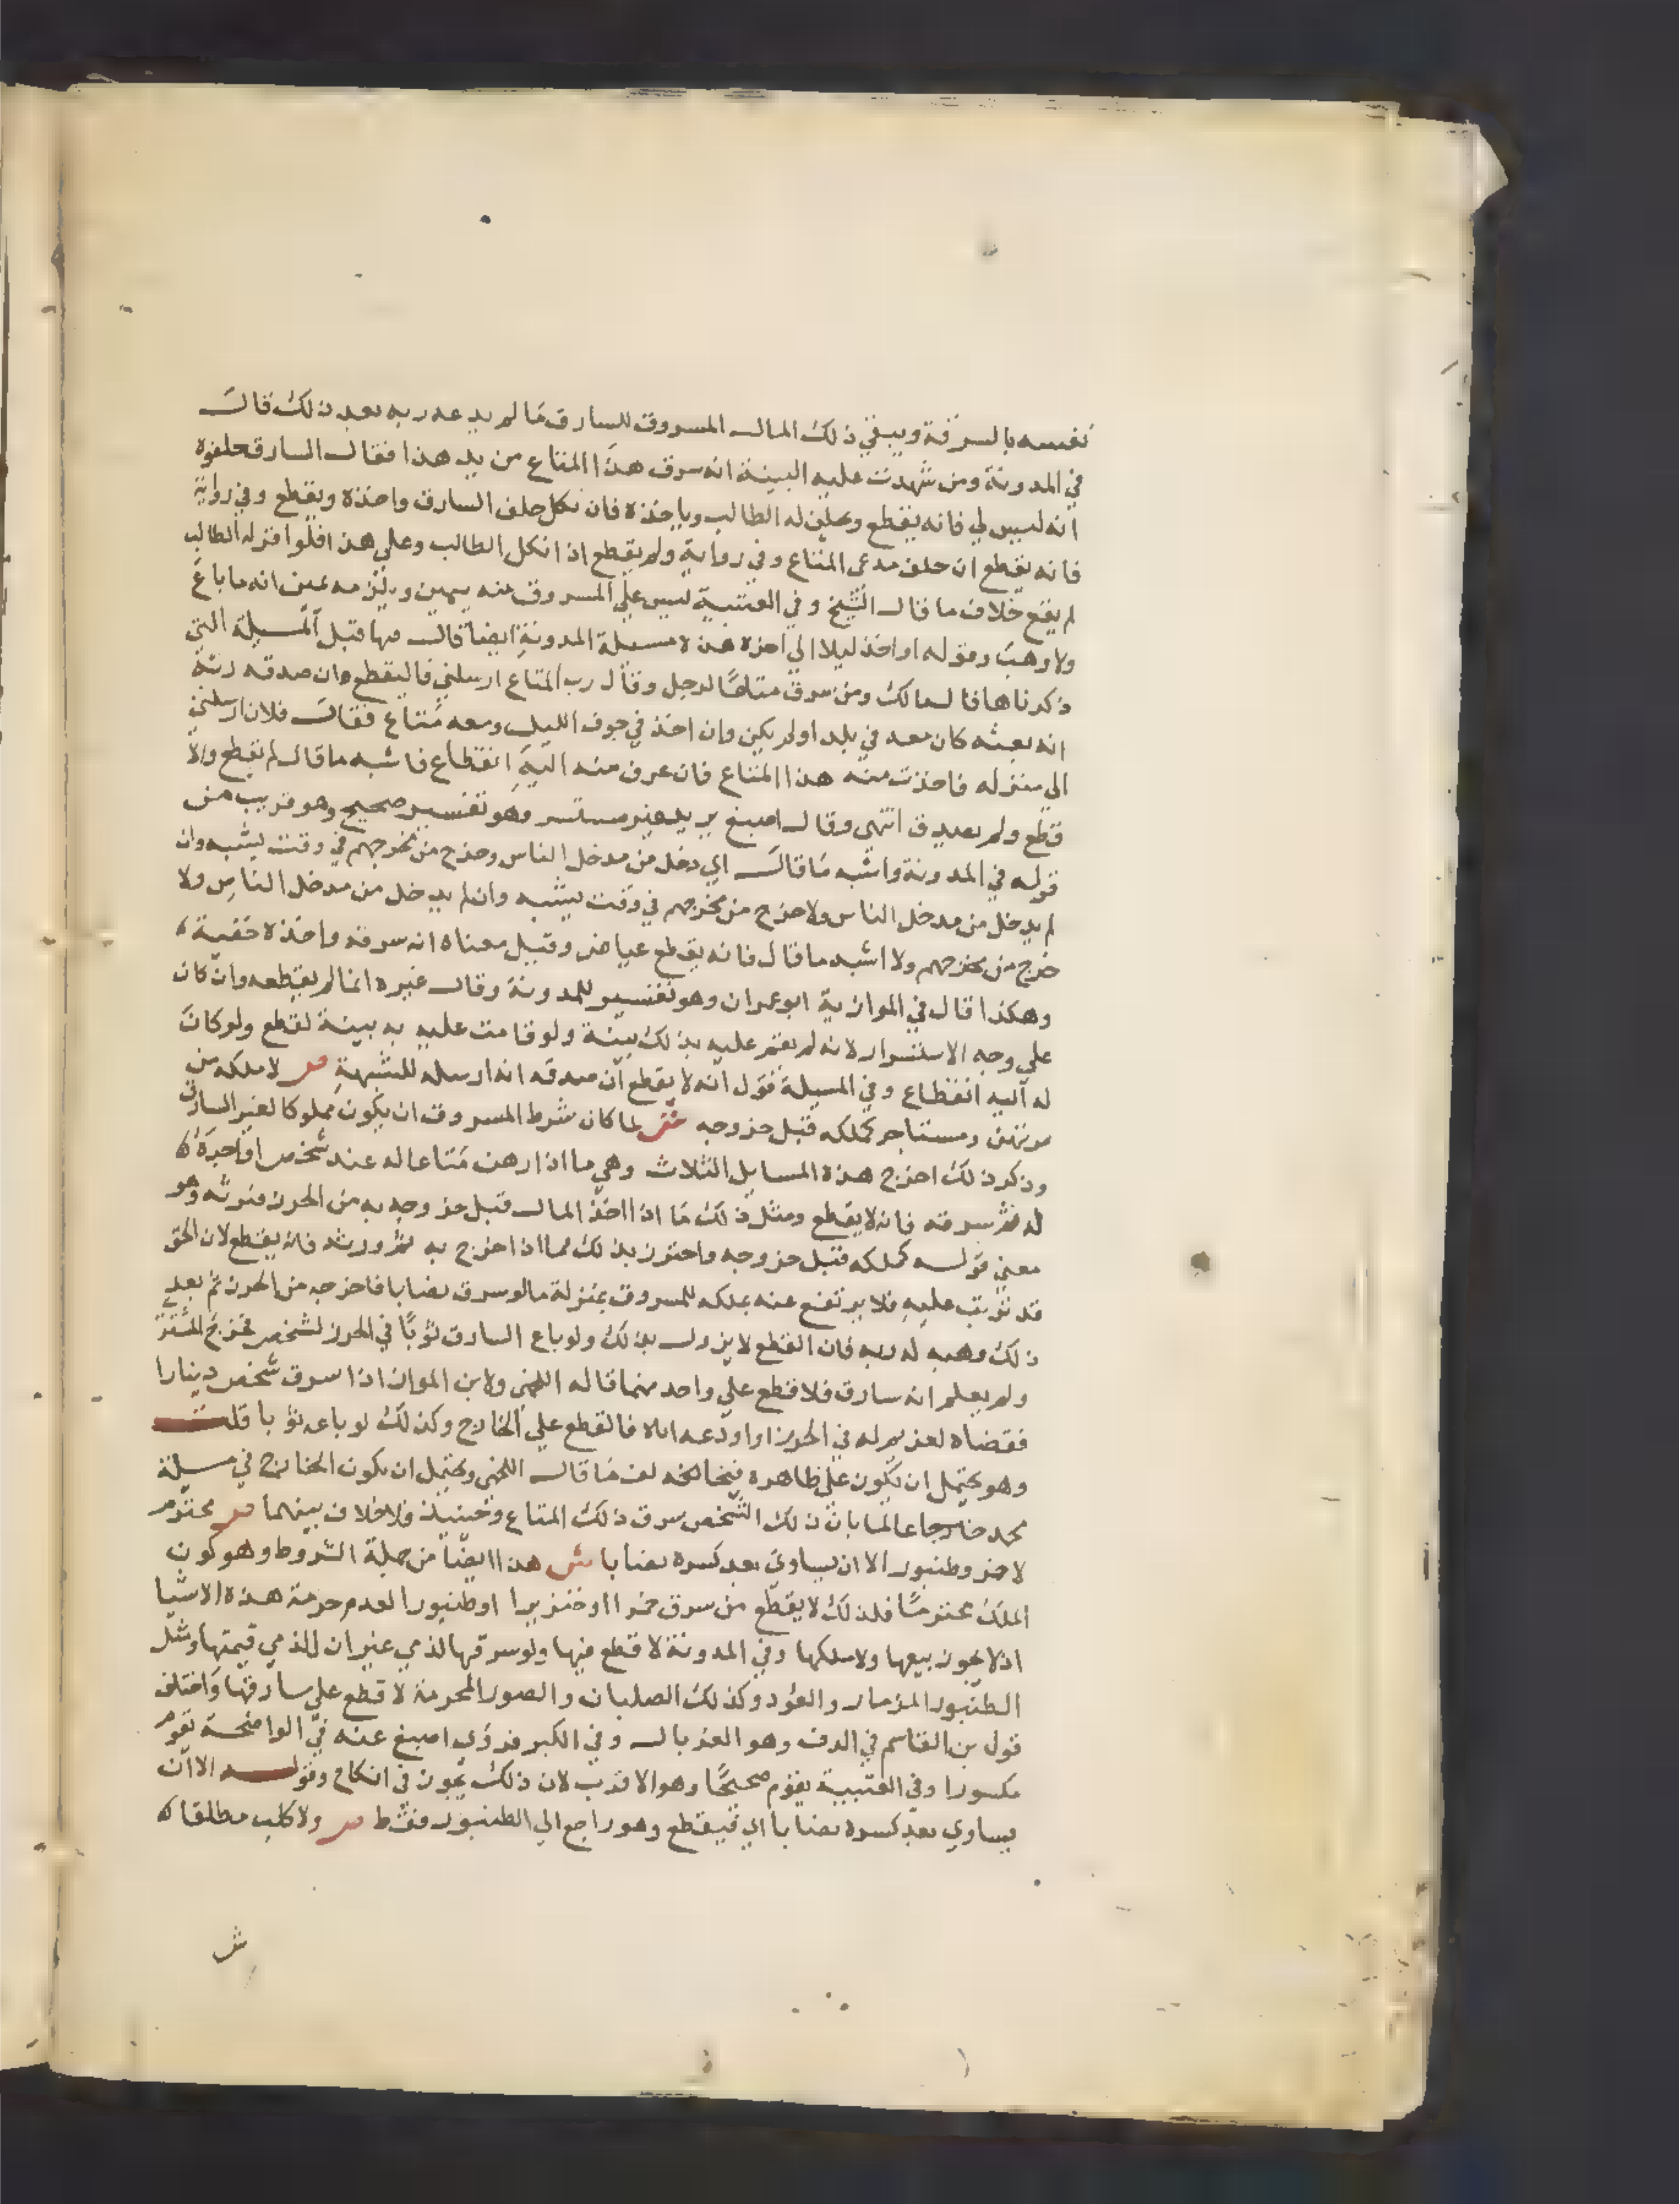 نفسه بالسرقة ويبقي ذلك المال المسروق للسارق ما لم يدعه ربه بعد ذلك قال
في المدونة ومن شهدت عليه البينة انه سرق هذا المتاع من يد هذا فقال السارق حلفوه
انه ليس لي فانه يقطع ويحلف له الطالب وياخذه فان نكل حلف السارق واخذه ويقطع وفي رواية
فانه يقطع ان حلف مدعي المتاع وفي رواية ولم يقطع اذا نكل الطالب وعلي هذا فلو اقر له الطالب
لم يقع خلاف ما قال الشيخ وفي العتبية ليس علي المسروق منه يمين ويلزمه يمين انه ما باع
ولا وهب وقوله او اخذ ليلا الي اخره هذه مسيلة المدونة ايضا قال فيها قبل المسيلة التي
ذكرناها قال مالك ومن سرق متاعا لرجل وقال رب المتاع ارسلني فاليقطع وان صدقه ربه
انه بعثه كان معه في بلد او لم يكن وان اخذ في جوف الليل ومعه متاع فقال فلان ارسلني
الي منزله فاخذت منه هذا المتاع فان عرف منه اليه انقطاع فاشبه ما قال لم يقطع والا
قطع ولم يصدق انتهي وقال اصبغ يريد غير مستسر وهو تفسير صحيح وهو قريب من
قوله في المدونة واشبه ما قال اي دخل من مدخل الناس وخرج من مخرجهم في وقت يشبه وان
لم يدخل من مدخل الناس ولا خرج من مخرجهم في وقت يشبه وان لم يدخل من مدخل الناس ولا
خرج من مخرجهم ولا اشبه ما قال فانه يقطع عياض وقيل معناه انه سرقه واخذه خفية
وهكذا قال في الموازية ابو عمران وهو تفسير للمدونة وقال غيره انما لم يقطعه وان كان
علي وجه الاستسرار لانه لم يقم عليه بذلك بينة ولو قامت عليه به بينة لقطع ولو كان
له اليه انقطاع وفي المسيلة قول انه لا يقطع ان صدقه انه ارسله للشبهة ص لا ملكه من
مرتهن ومستاجر كملكه قبل خروجه ش لما كان شرط المسروق ان يكون مملوكا لغير السارق
وذكر ذلك اخرج هذه المسايل الثلاث وهي ما اذا رهن متاعا له عند شخص او اجره
له ثم سرقه فانه لا يقطع ومثل ذلك ما اذا اخذ المال قبل خروجه به من الحرز فورثه وهو
معني قوله كملكه قبل خروجه واحترز بذلك مما اذا اخرج به ثم ورثه فانه يقطع لان الحق
قد ترتب عليه فلا يرتفع عنه بملكه للمسروق بمنزلة ما لو سرق نصابا فاخرجه من الحرز ثم بعد
ذلك وهبه له ربه فان القطع لا يزول بذلك ولو باع السارق ثوبا في الحرز لشخص فخرج المشتري
ولم يعلم انه سارق فلا قطع علي واحد منهما قاله اللخمي ولابن المواز اذا سرق شخص دينارا
فقضاه لغريم له في الحرز او اودعه اياه فالقطع علي الخارج وكذلك لو باعه ثوبا قلت
وهو يحتمل ان يكون علي ظاهره فيخالف ما قال اللخمي ويحتمل ان يكون الخارج في مسيلة
محمد خارجا عالما بان ذلك الشخص سرق ذلك المتاع وحينيذ فلا خلاف بينهما ص محترم
لا خمر وطنبور الا ان يساوي بعد كسره نصابا ش هذا ايضا من جملة الشروط وهو كون
الملك محترما فلذلك لا يقطع من سرق خمرا او خنزيرا او طنبورا لعدم حرمة هذه الاشيا
اذ لا يجوز بيعها ولا ملكها وفي المدونة لا قطع فيها ولو سرقها لذمي غير ان للذمي قيمتها ومثل
الطنبور المزمار والعود وكذلك الصلبان والصور المحرمة لا قطع علي سارقها واختلف
قول بن القاسم في الدف وهو الغربال وفي الكبر فروي اصبغ عنه في الواضحة يقوم
مكسورا وفي العتبية يقوم صحيحا وهو الاقرب لان ذلك يجوز في النكاح وقوله الا ان
يساوي بعد كسره نصابا اي فيقطع وهو راجع الي الطنبور فقط ص ولا كلب مطلقا
ش